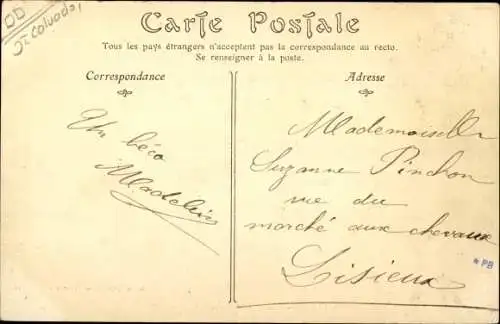 OD
Jt Calvados
Carte Postale
Tous les pays étrangers n'acceptent pas la correspondance au recto.
Se renseigner à la poste.
Correspondance
Un béco
Madeleine
Adresse
Mademoiselle
Suzanne Pinchon
rue du
marché aux chevaux
Lisieux
*PB